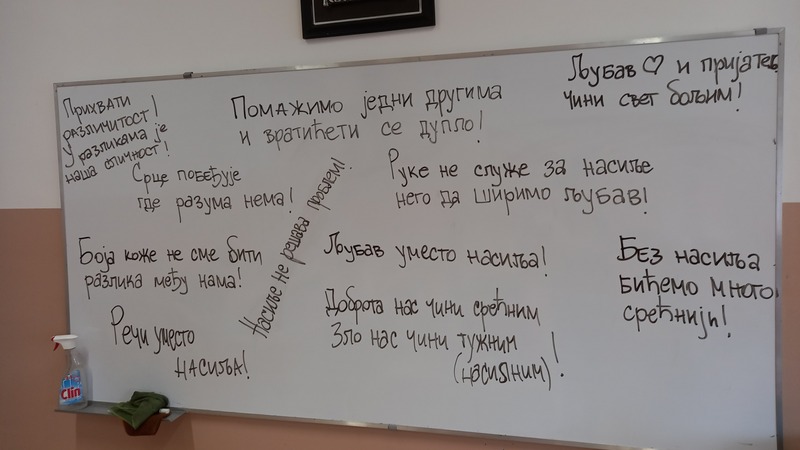 Прихвати
различитост!
У разликама је
наша сличност!
Помажимо једни другима
и вратићети се дупло!
Љубав ♡ и пријатељ
чини свет бољим!
Срце побеђује
где разума нема!
Руке не служе за насиље
него да ширимо љубав!
Насиље не решава проблем!
Боја коже не сме бити
разлика међу нама!
Љубав уместо насиља!
Без насиља
бићемо много
срећнији!
Речи уместо
насиља!
Доброта нас чини срећним
Зло нас чини тужним
(насилним)!
Clin